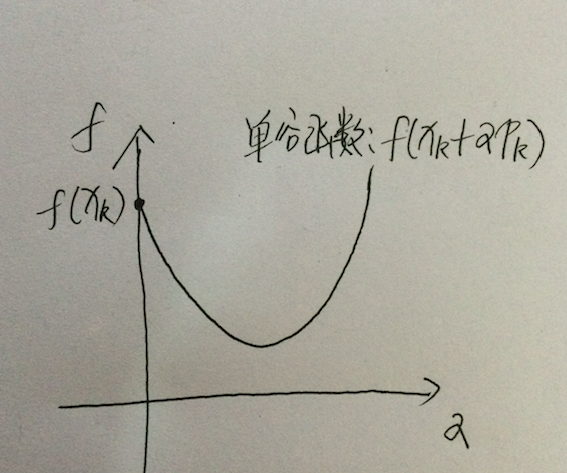 f
单谷函数: f(x_k+αp_k)
f(x_k)
α